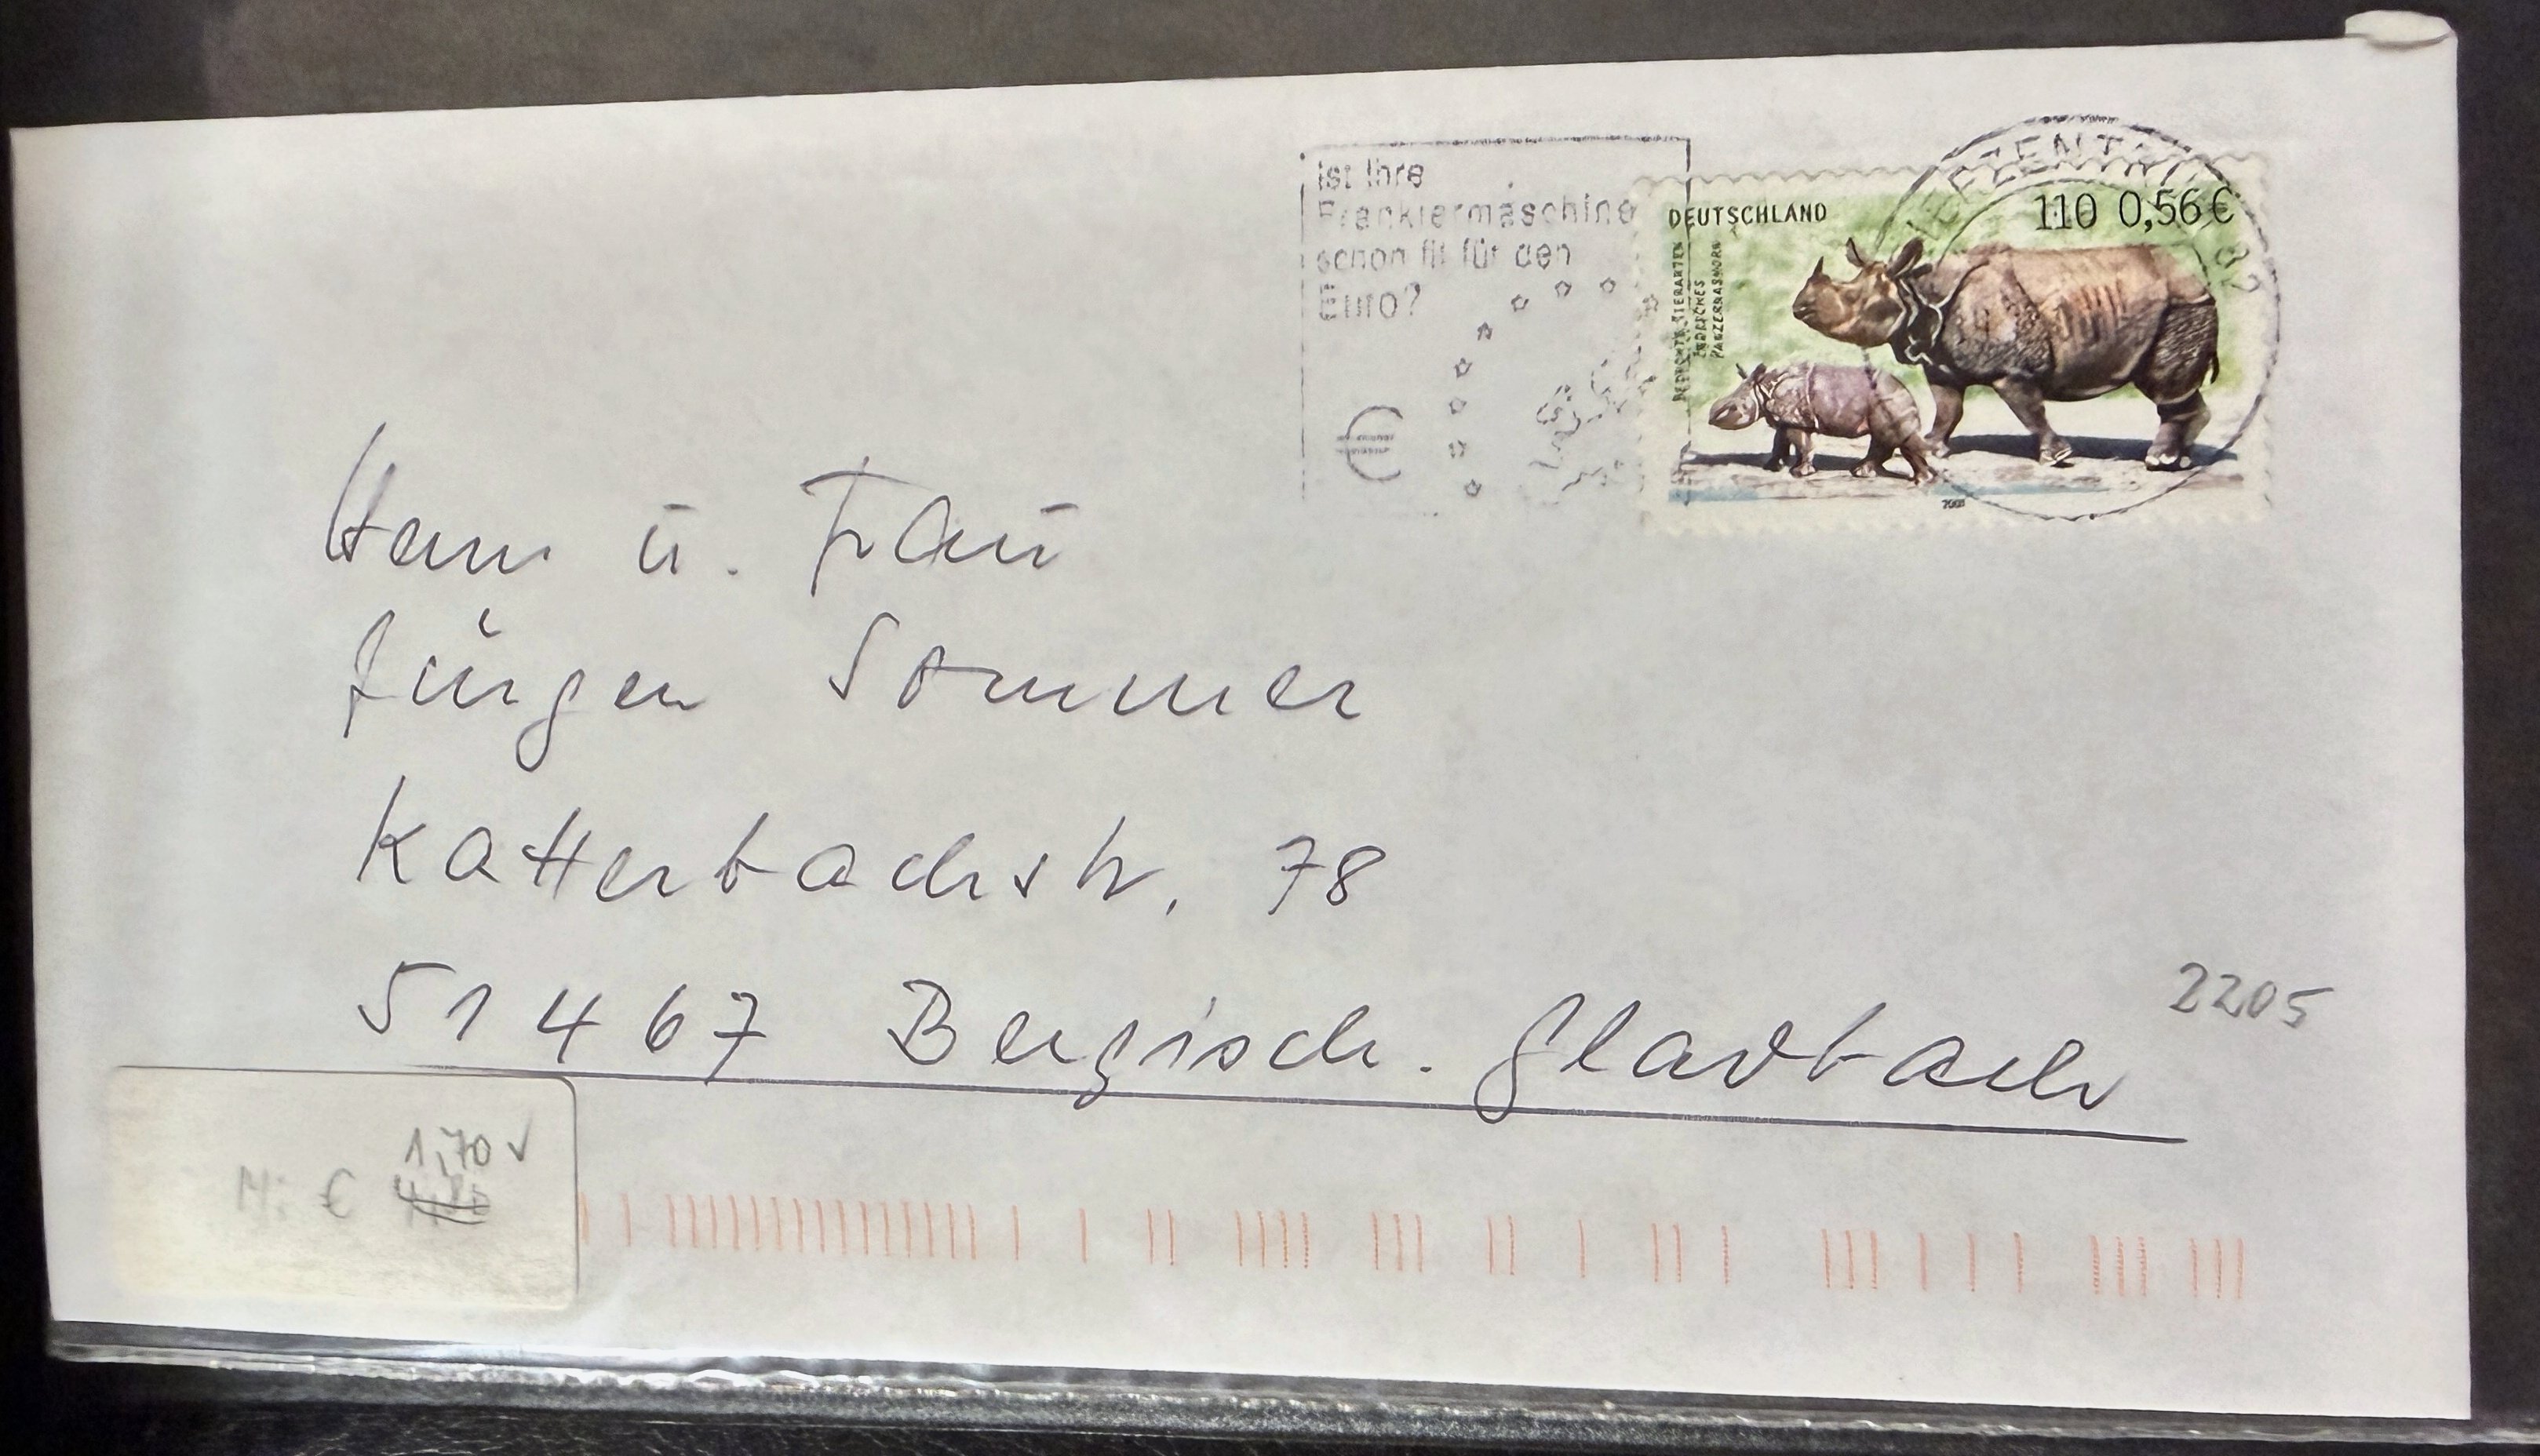 Ist Ihre
Frankiermaschine
schon fit für den
Euro?
€
DEUTSCHLAND
110 0,56 €
BEDROHTE TIERARTEN
INDISCHES
PANZERNASHORN
2001
Herrn u. Frau
Jürgen Sommer
Katterbachstr. 78
51467 Bergisch. Gladbach
2205
1,70 ✓
Mi €